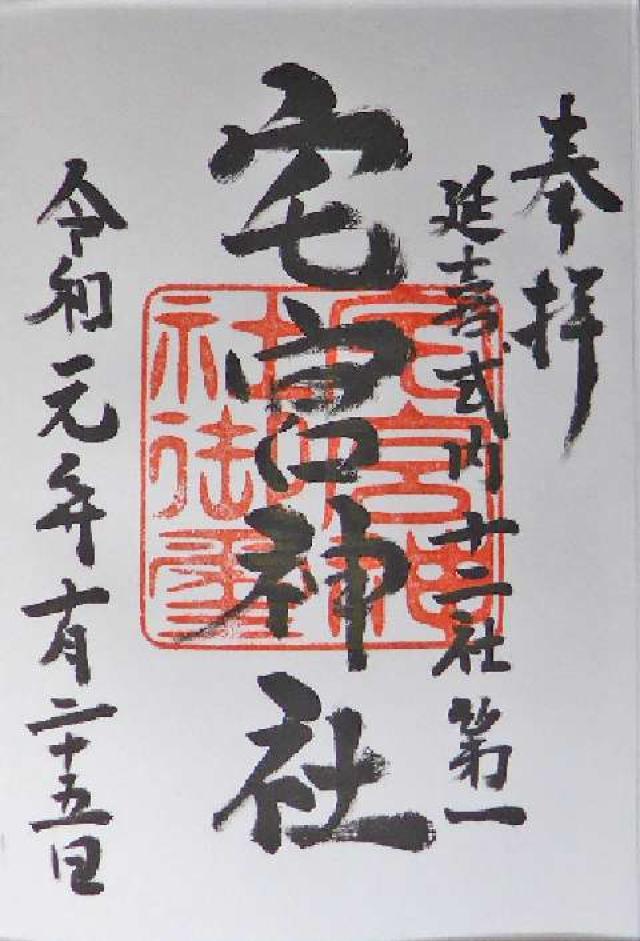 奉拝
延喜式内十二社第一
宅宮神社
宅宮神
社印
社御璽
令和元年十月二十五日